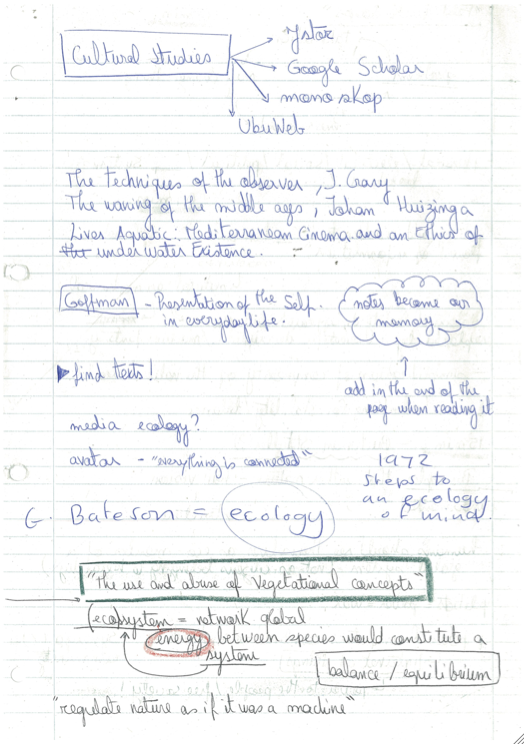 Cultural Studies
Jstor
Google Scholar
monoskop
UbuWeb
The techniques of the observer, J. Crary
The waning of the middle ages, Johan Huizinga
Lives Aquatic: Mediterranean Cinema and an Ethics of
the underwater Existence.
Goffman - Presentation of the Self
in everyday life.
notes become our
memory
find texts!
add in the end of the
page when reading it
media ecology?
avatar - "everything is connected"
1972
steps to
an ecology
of mind.
G. Bateson = ecology
"The use and abuse of Vegetational concepts"
(ecosystem = network global
energy between species would constitute a
system
balance / equilibrium
"regulate nature as if it was a machine"